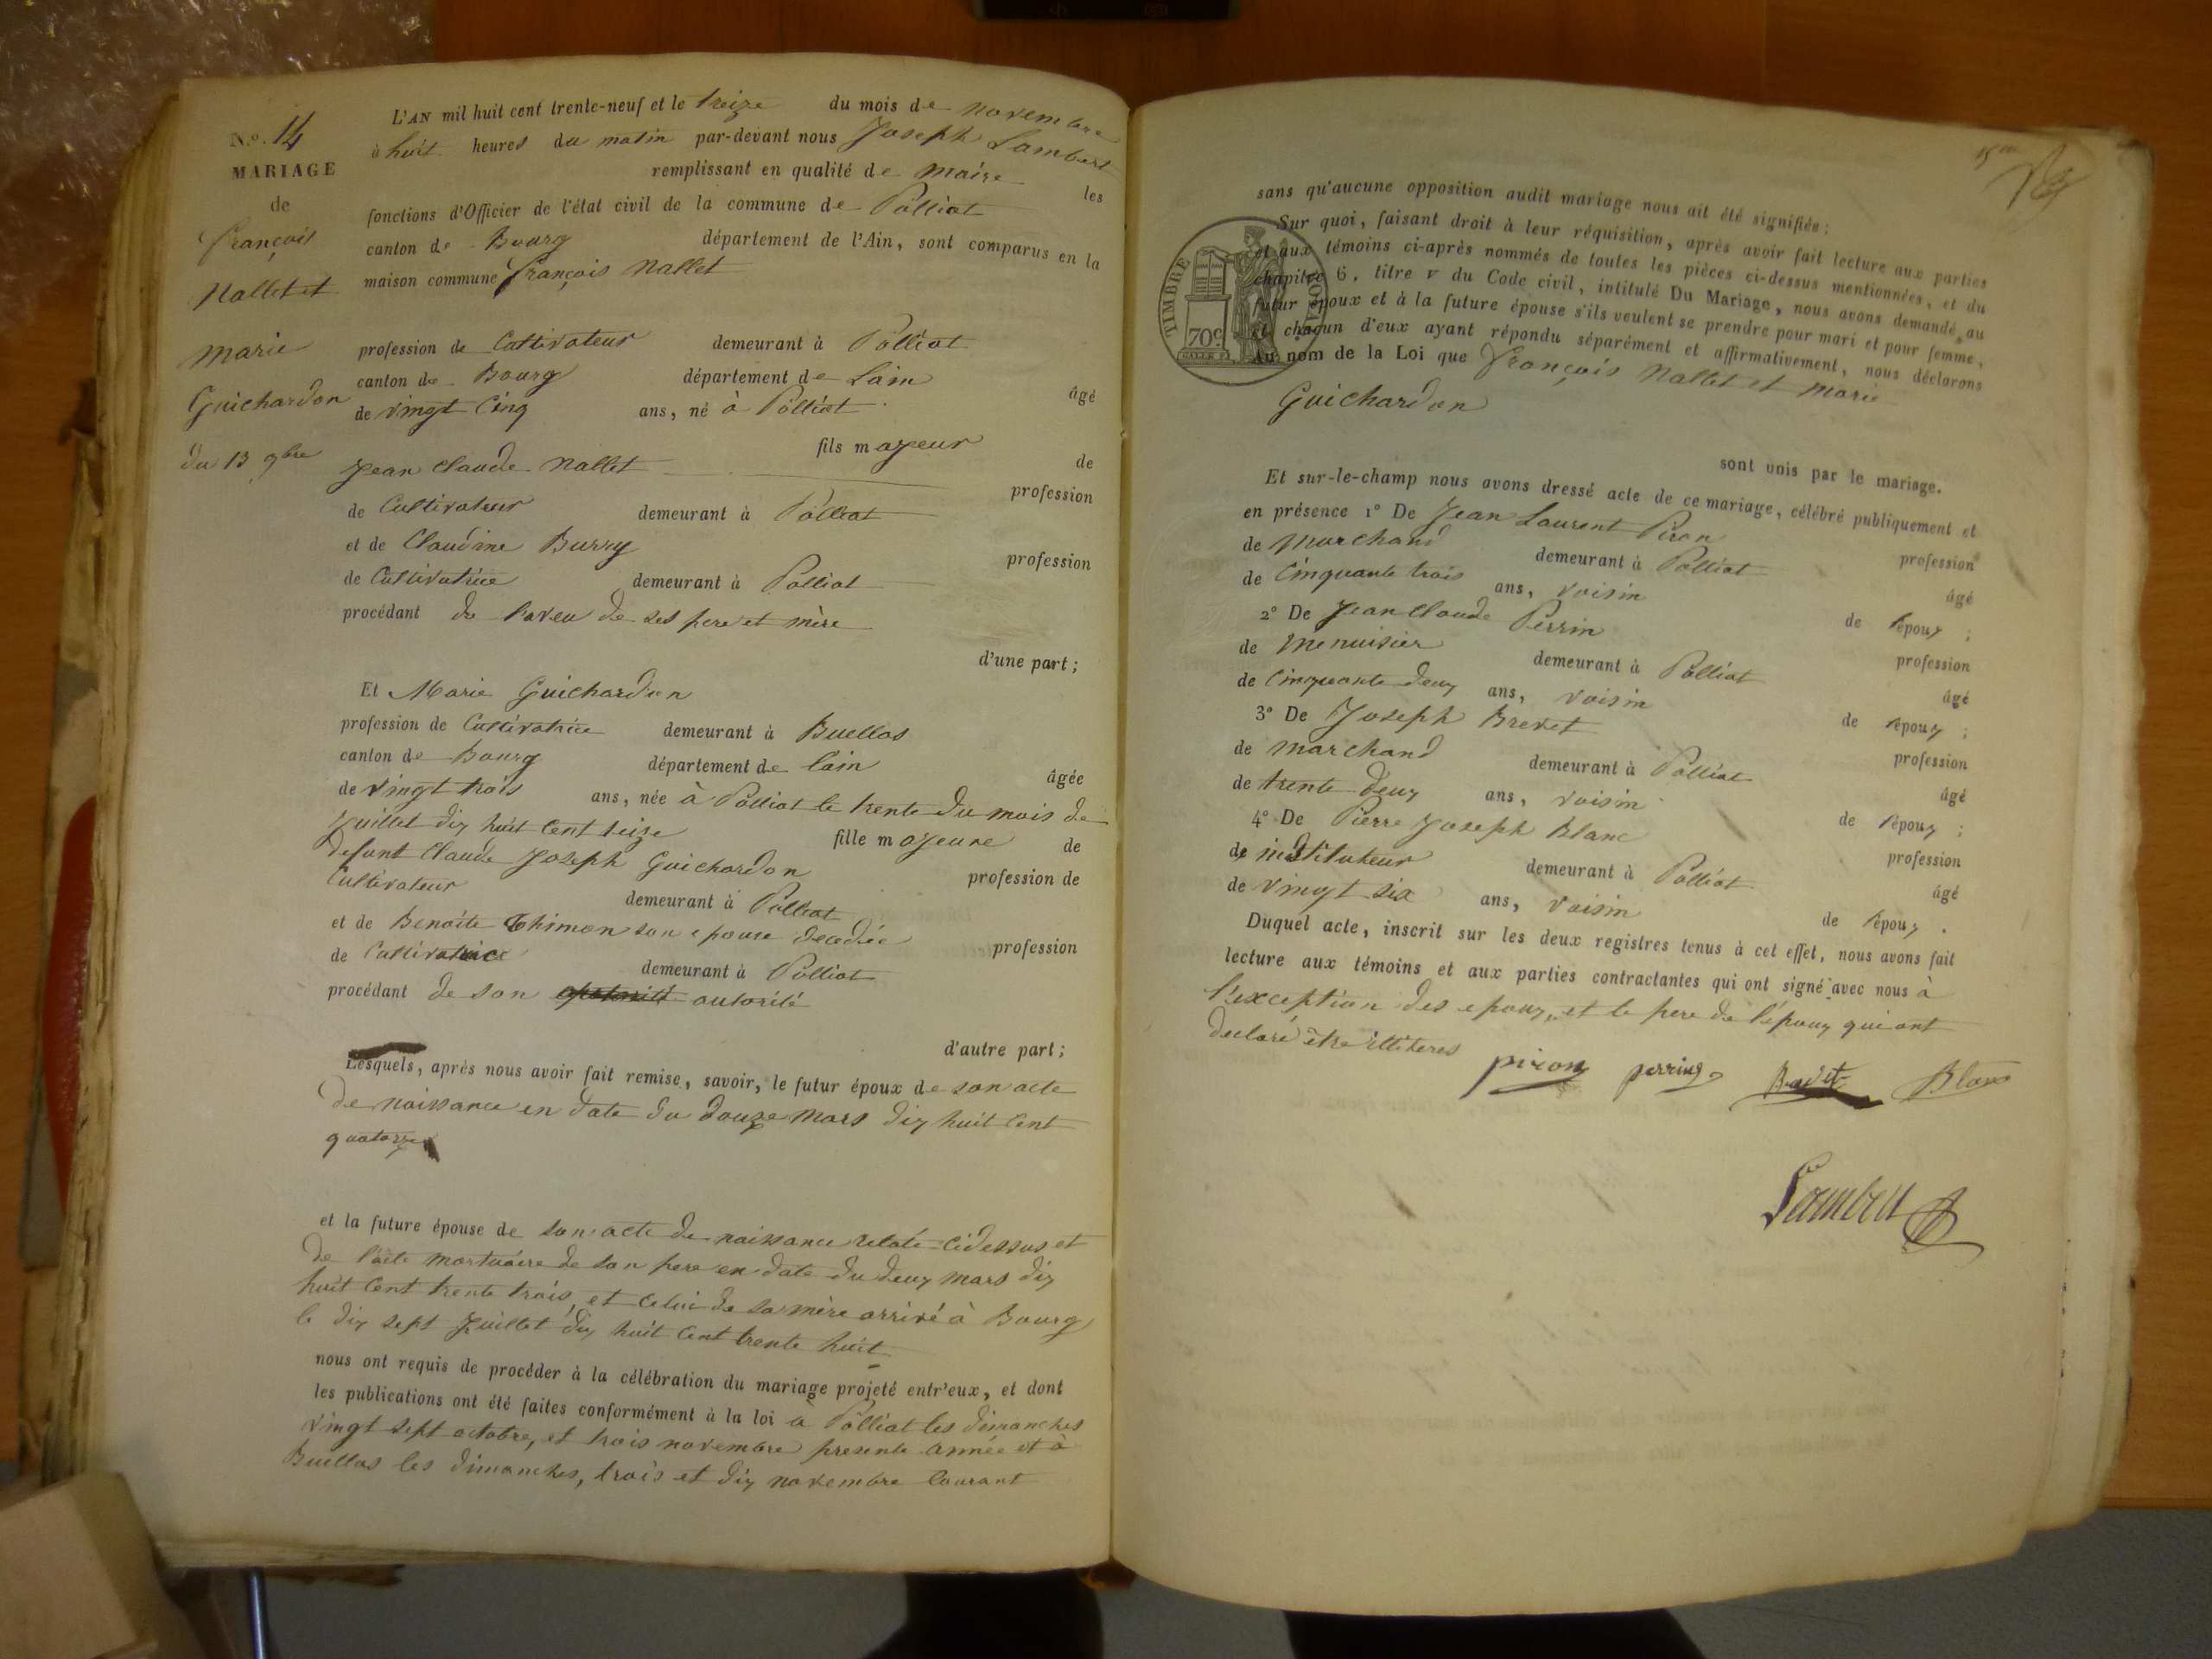 N.o 14
MARIAGE
de
françois
Nallet et
marie
Guichardon
du 13 9bre
L'AN mil huit cent trente-neuf et le treize du mois de novembre
à huit heures du matin par-devant nous Joseph Lambert
remplissant en qualité de maire les
fonctions d'Officier de l'état civil de la commune de Polliat
canton de Bourg département de l'Ain, sont comparus en la
maison commune françois Nallet
profession de Cultivateur demeurant à Polliat
canton de Bourg département de Lain âgé
de vingt Cinq ans, né à Polliat
fils majeur de
Jean Claude Nallet profession
de Cultivateur demeurant à Polliat
et de Claudine Burry profession
de Cultivatrice demeurant à Polliat
procédant de laveu de ses pere et mère
d'une part;
Et Marie Guichardon
profession de Cultivatrice demeurant à Buellas
canton de Bourg département de lain âgée
de vingt trois ans, née à Polliat le trente du mois de
Juillet dix huit cent seize fille majeure de
defunt Claude Joseph Guichardon profession de
Cultivateur demeurant à Polliat
et de Benoite Thimon son epouse decedée profession
de Cultivatrice demeurant à Polliat
procédant de son autorité
d'autre part;
Lesquels, après nous avoir fait remise, savoir, le futur époux de son acte
de naissance en date du douze mars dix huit cent
quatorze
et la future épouse de son acte de naissance relaté cidessus et
de l'acte mortuaire de son pere en date du deux mars dix
huit Cent trente trois, et celui de sa mère arrivé à Bourg
le dix sept Juillet dix huit Cent trente huit
nous ont requis de procéder à la célébration du mariage projeté entr'eux, et dont
les publications ont été faites conformément à la loi à Polliat les dimanches
vingt sept octobre, et trois novembre presente année et à
Buellas les dimanches, trois et dix novembre Courant
sans qu'aucune opposition audit mariage nous ait été signifiée;
Sur quoi, faisant droit à leur réquisition, après avoir fait lecture aux parties
et aux témoins ci-après nommés de toutes les pièces ci-dessus mentionnées, et du
chapitre 6, titre v du Code civil, intitulé Du Mariage, nous avons demandé au
futur époux et à la future épouse s'ils veulent se prendre pour mari et pour femme,
et chacun d'eux ayant répondu séparément et affirmativement, nous déclarons
Au nom de la Loi que françois Nallet et marie
Guichardon
sont unis par le mariage.
TIMBRE ROYAL
70c
Et sur-le-champ nous avons dressé acte de ce mariage, célébré publiquement et
en présence 1° De Jean Laurent Piron profession
de marchand demeurant à Polliat âgé
de Cinquante trois ans, voisin de l'époux ;
2° De Jean Claude Perrin profession
de menuisier demeurant à Polliat âgé
de Cinquante deux ans, voisin de l'époux ;
3° De Joseph Brevet profession
de marchand demeurant à Polliat âgé
de trente deux ans, voisin de l'époux ;
4° De Pierre Joseph Blanc profession
de instituteur demeurant à Polliat âgé
de vingt six ans, voisin de l'époux .
Duquel acte, inscrit sur les deux registres tenus à cet effet, nous avons fait
lecture aux témoins et aux parties contractantes qui ont signé avec nous à
l'exception des epoux, et le pere de l'époux qui ont
declaré être illiteres
piron perrin Brevet Blanc
Lambert